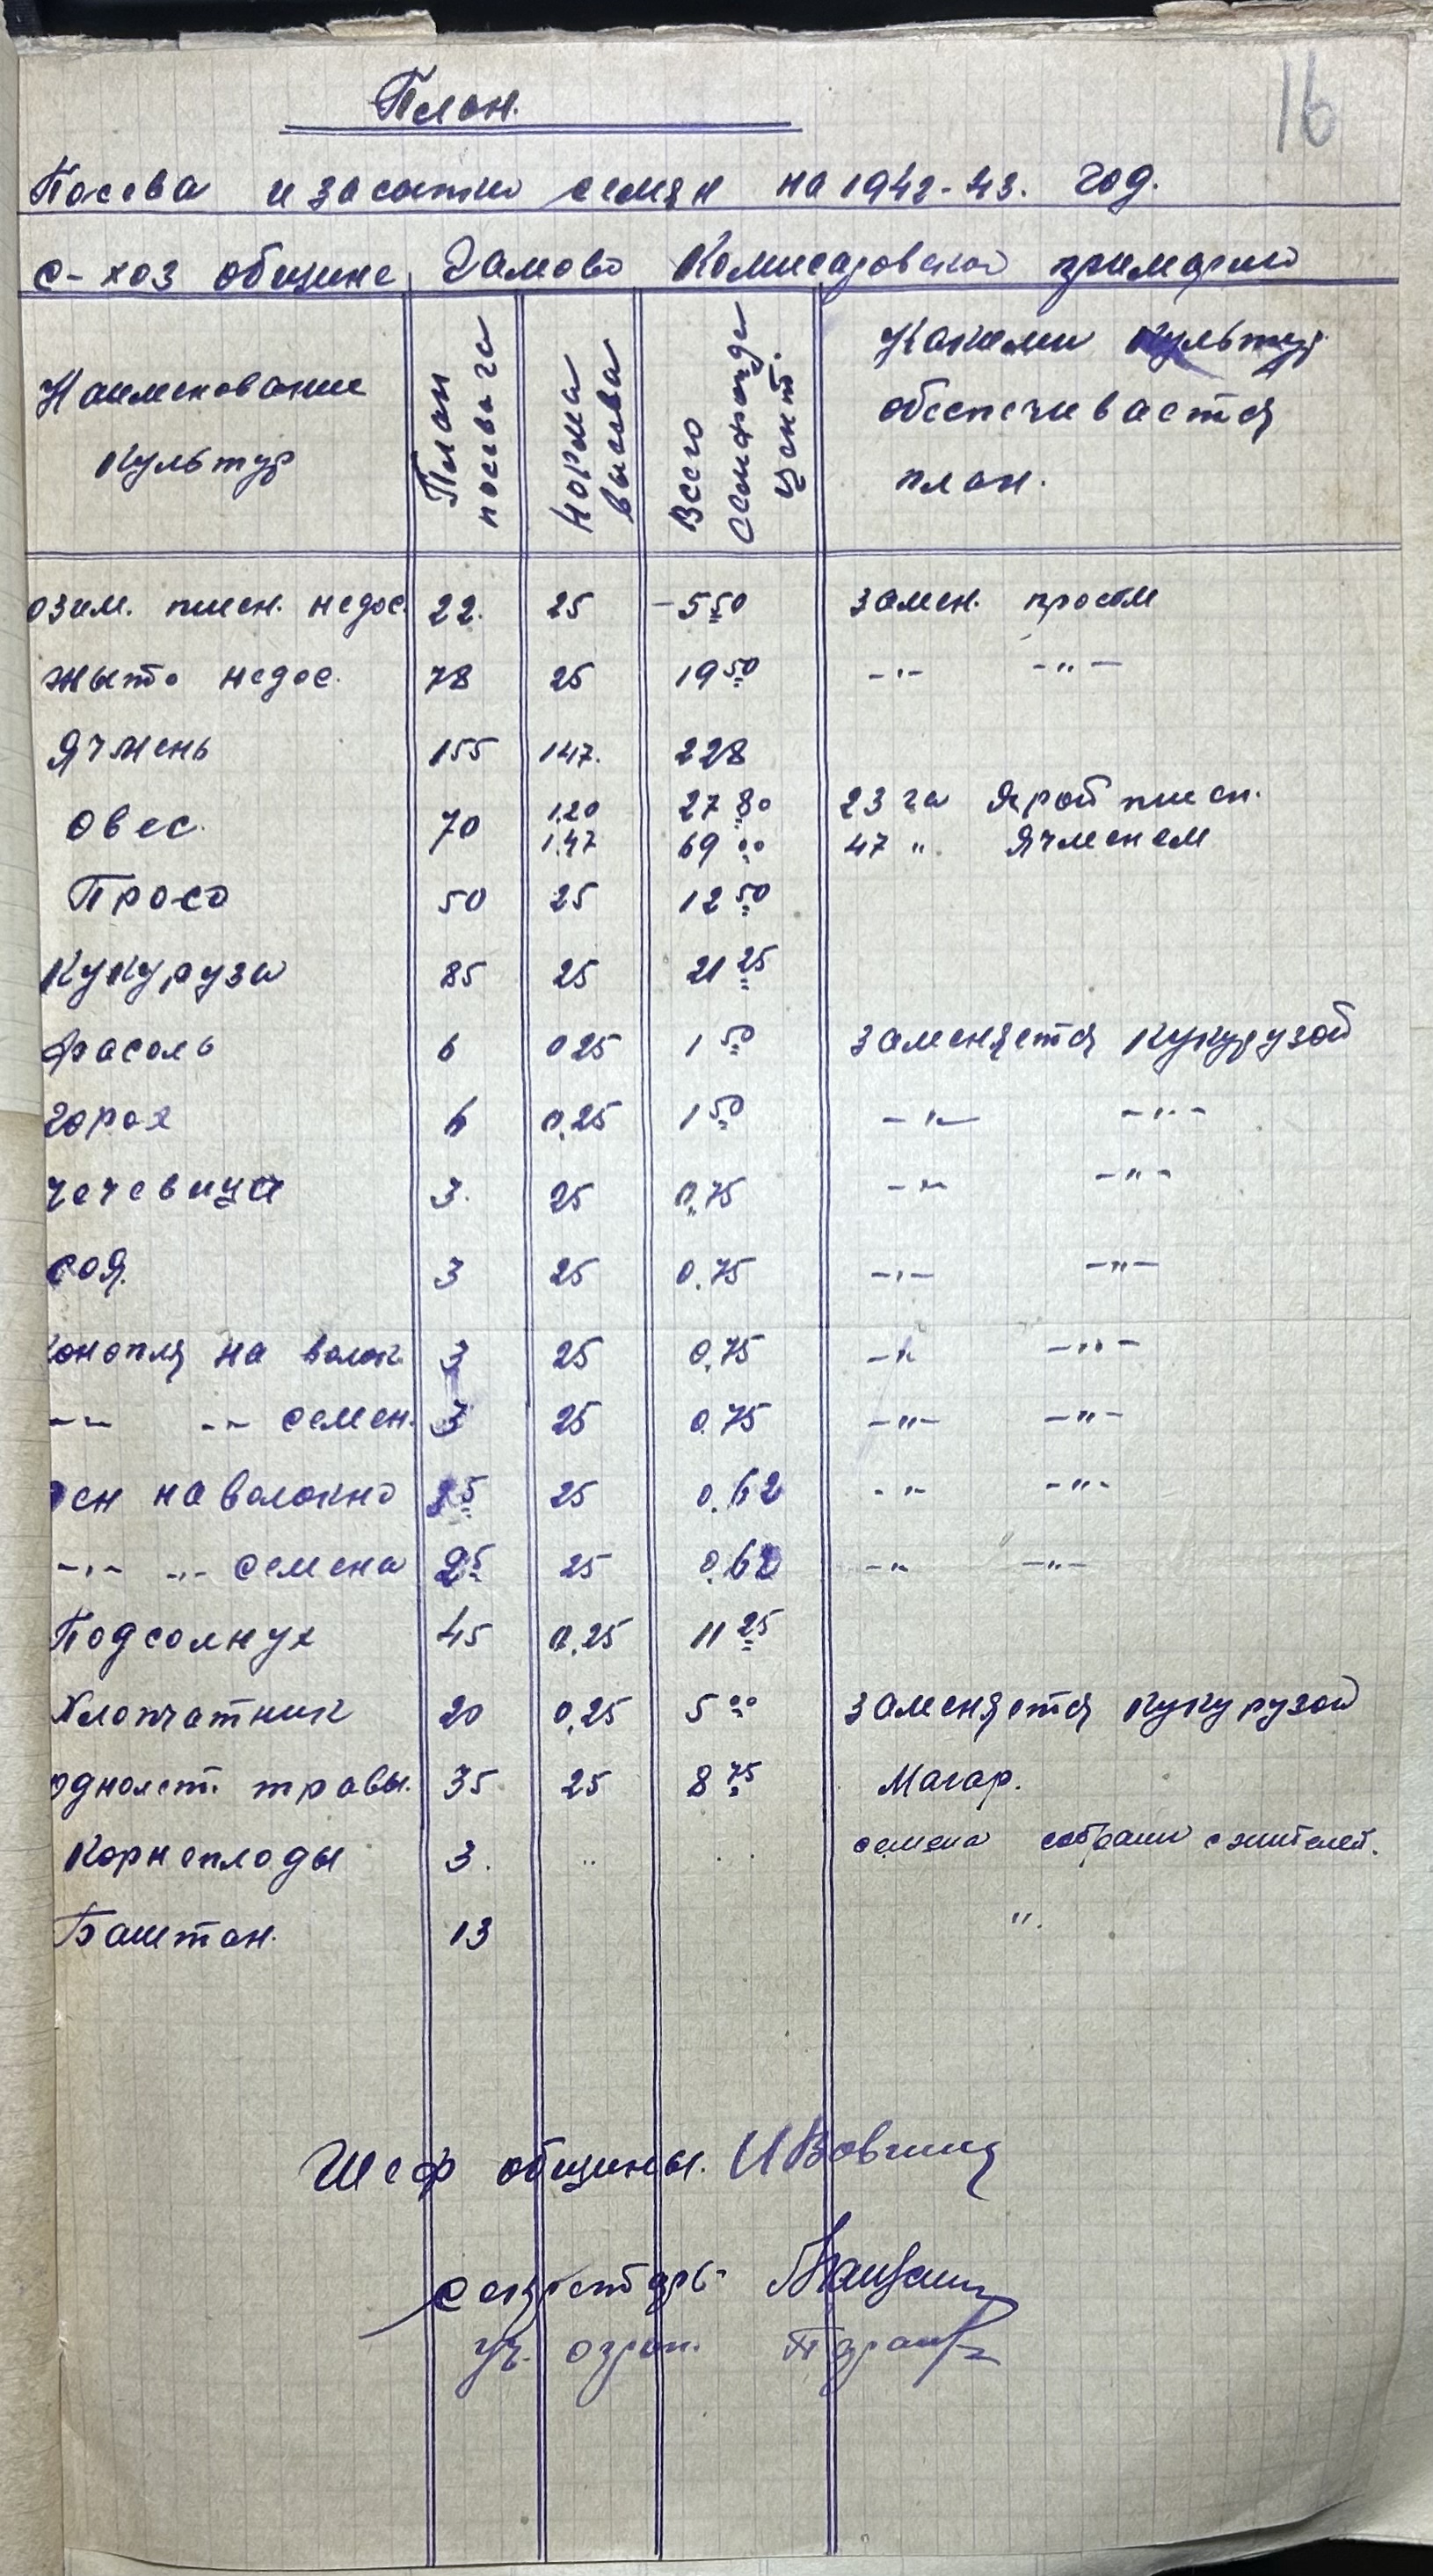 16
План.
Посева и засыпки семян на 1942-43. год.
с-хоз общине Гамово Комисаровской примарии
Наименование культур
План посева га
Норма высева
Всего семфонда цент.
Какими культур. обеспечивается план.
озим. пшен. недос. 22. 25 -5 50 замен. просом
жыто недос. 78 25 19 50 -"- -"-
Ячмень 155 147. 228
Овес. 70 1.20 27 80 23 га Ярой пшен.
1.47 69 00 47 " Ячменем
Просо 50 25 12 50
Кукуруза 85 25 21 25
Фасоль 6 0.25 1 50 заменяется кукурузой
горох 6 0.25 1 50 -"- -"-
чечевица 3. 25 0.75 -"- -"-
соя. 3 25 0.75 -"- -"-
конопля на волок. 3 25 0.75 -"- -"-
-"- -"- семен. 3 25 0.75 -"- -"-
лен на волокно 2 5 25 0.62 -"- -"-
-"- -"- семена 2 5 25 0.62 -"- -"-
Подсолнух 45 0.25 11 25
Хлопчатник 20 0.25 5 00 заменяется кукурузой
однолетн. травы. 35 25 8 75 Могар.
Корнеплоды 3. .. .. семена собраны с жителей.
Баштан. 13 ".
Шеф общины. И Вовчина
секретарь
уч. агрон.